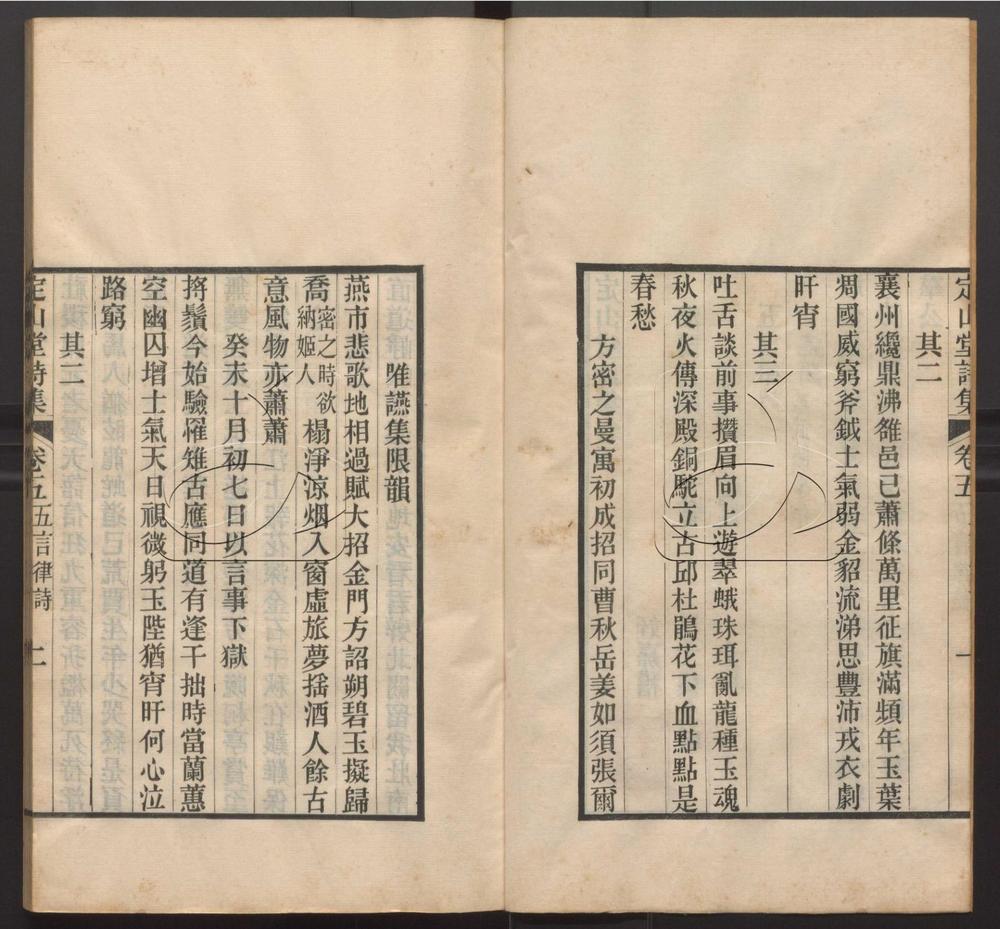 定山堂詩集 卷五 一
其二
襄州纔鼎沸雒邑已蕭條萬里征旗滿頻年玉葉
凋國威窮斧鉞士氣弱金貂流涕思豐沛戎衣劇
旰宵
其三
吐舌談前事攢眉向上遊翠蛾珠珥亂龍種玉魂
秋夜火傳深殿銅駝立古邱杜鵑花下血點點是
春愁
方密之曼寓初成招同曹秋岳姜如須張爾
唯讌集限韻
燕市悲歌地相過賦大招金門方詔朔碧玉擬歸
喬密之時欲納姬人榻淨涼烟入窗虛旅夢搖酒人餘古
意風物亦蕭蕭
癸未十月初七日以言事下獄
捋鬚今始驗罹雉古應同道有逢干拙時當蘭蕙
空幽囚增士氣天日視微躬玉陛猶宵旰何心泣
路窮
其二
定山堂詩集 卷五 五言律詩 二